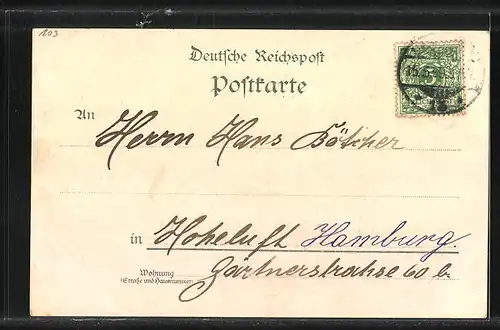 103
Deutsche Reichspost
Postkarte
An
Herrn Hans Bötcher
in Hoheluft Hamburg.
Wohnung
(Straße und Hausnummer)
Gärtnerstrahse 60 b.